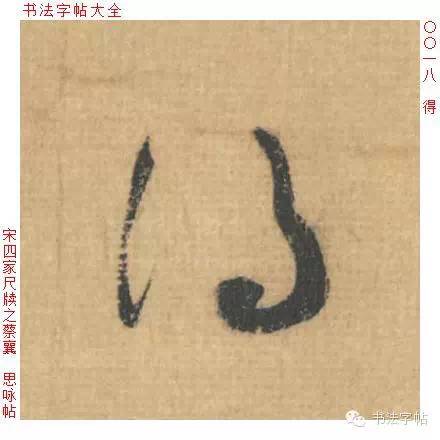 书法字帖大全
〇〇一八 得
得
宋四家尺牍之蔡襄 思咏帖
书法字帖